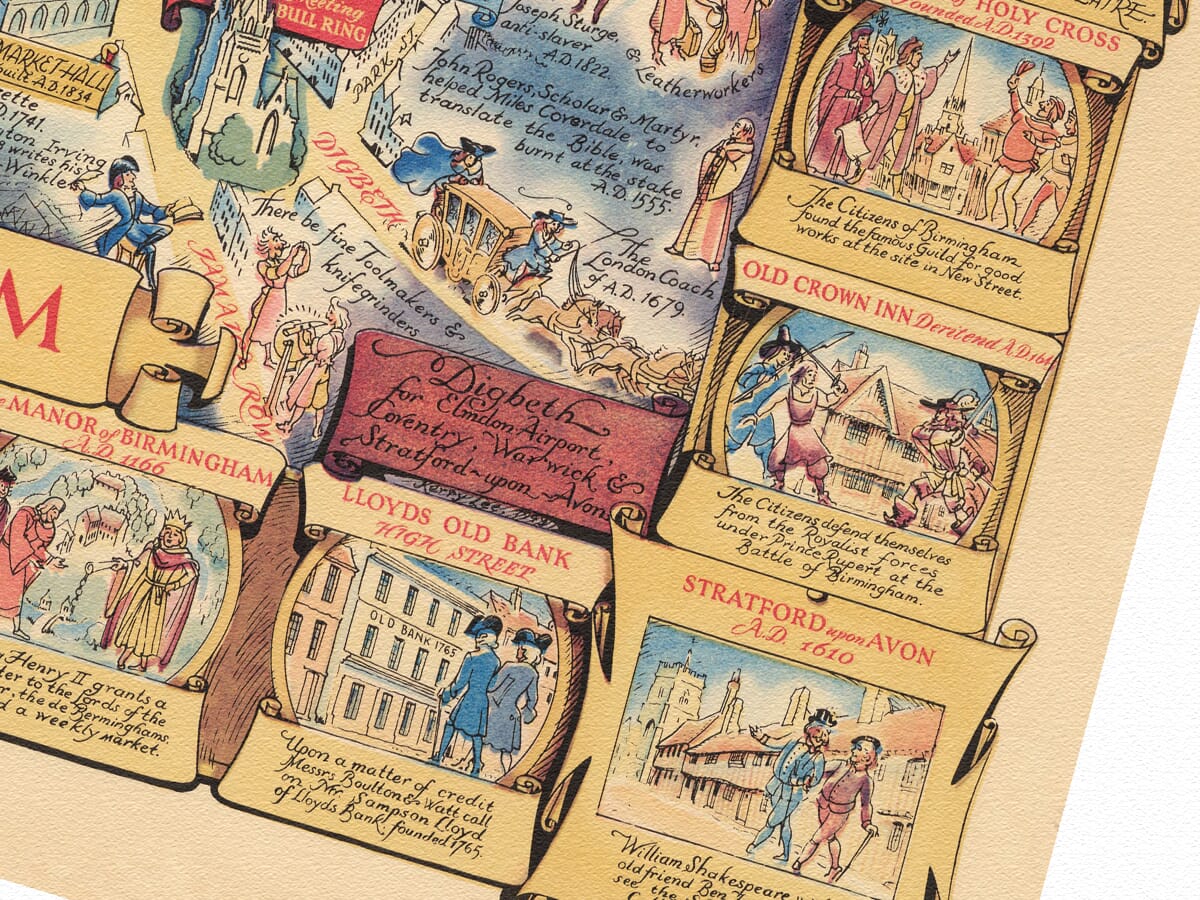 Meeting
BULL RING
MARKET HALL
built A.D. 1834
PARK ST.
Joseph Sturge,
anti-slaver
A.D. 1822.
& Leatherworkers
John Rogers, Scholar & Martyr,
helped Miles Coverdale to
translate the Bible, was
burnt at the stake
A.D. 1555.
1741.
Irving
writes his
Winkle
DIGBETH
There be fine Toolmakers &
knifegrinders
The
London Coach
of A.D. 1679.
ROW
M
Digbeth
for Elmdon Airport,
Coventry, Warwick, &
Stratford-upon-Avon
of HOLY CROSS
Founded A.D. 1392
The Citizens of Birmingham
found the famous Guild for good
works at the site in New Street.
OLD CROWN INN Deritend A.D. 164
The Citizens defend themselves
from the Royalist forces
under Prince Rupert at the
Battle of Birmingham.
MANOR of BIRMINGHAM
A.D. 1166
Henry II grants a
ter to the Lords of the
r, the de Bermingham's.
d a weekly market.
LLOYDS OLD BANK
HIGH STREET
OLD BANK 1765
Upon a matter of credit
Messrs Boulton & Watt call
on Mr. Sampson Lloyd
of Lloyds Bank, founded 1765.
STRATFORD upon AVON
A.D. 1610
William Shakespeare
old friend Ben
see the